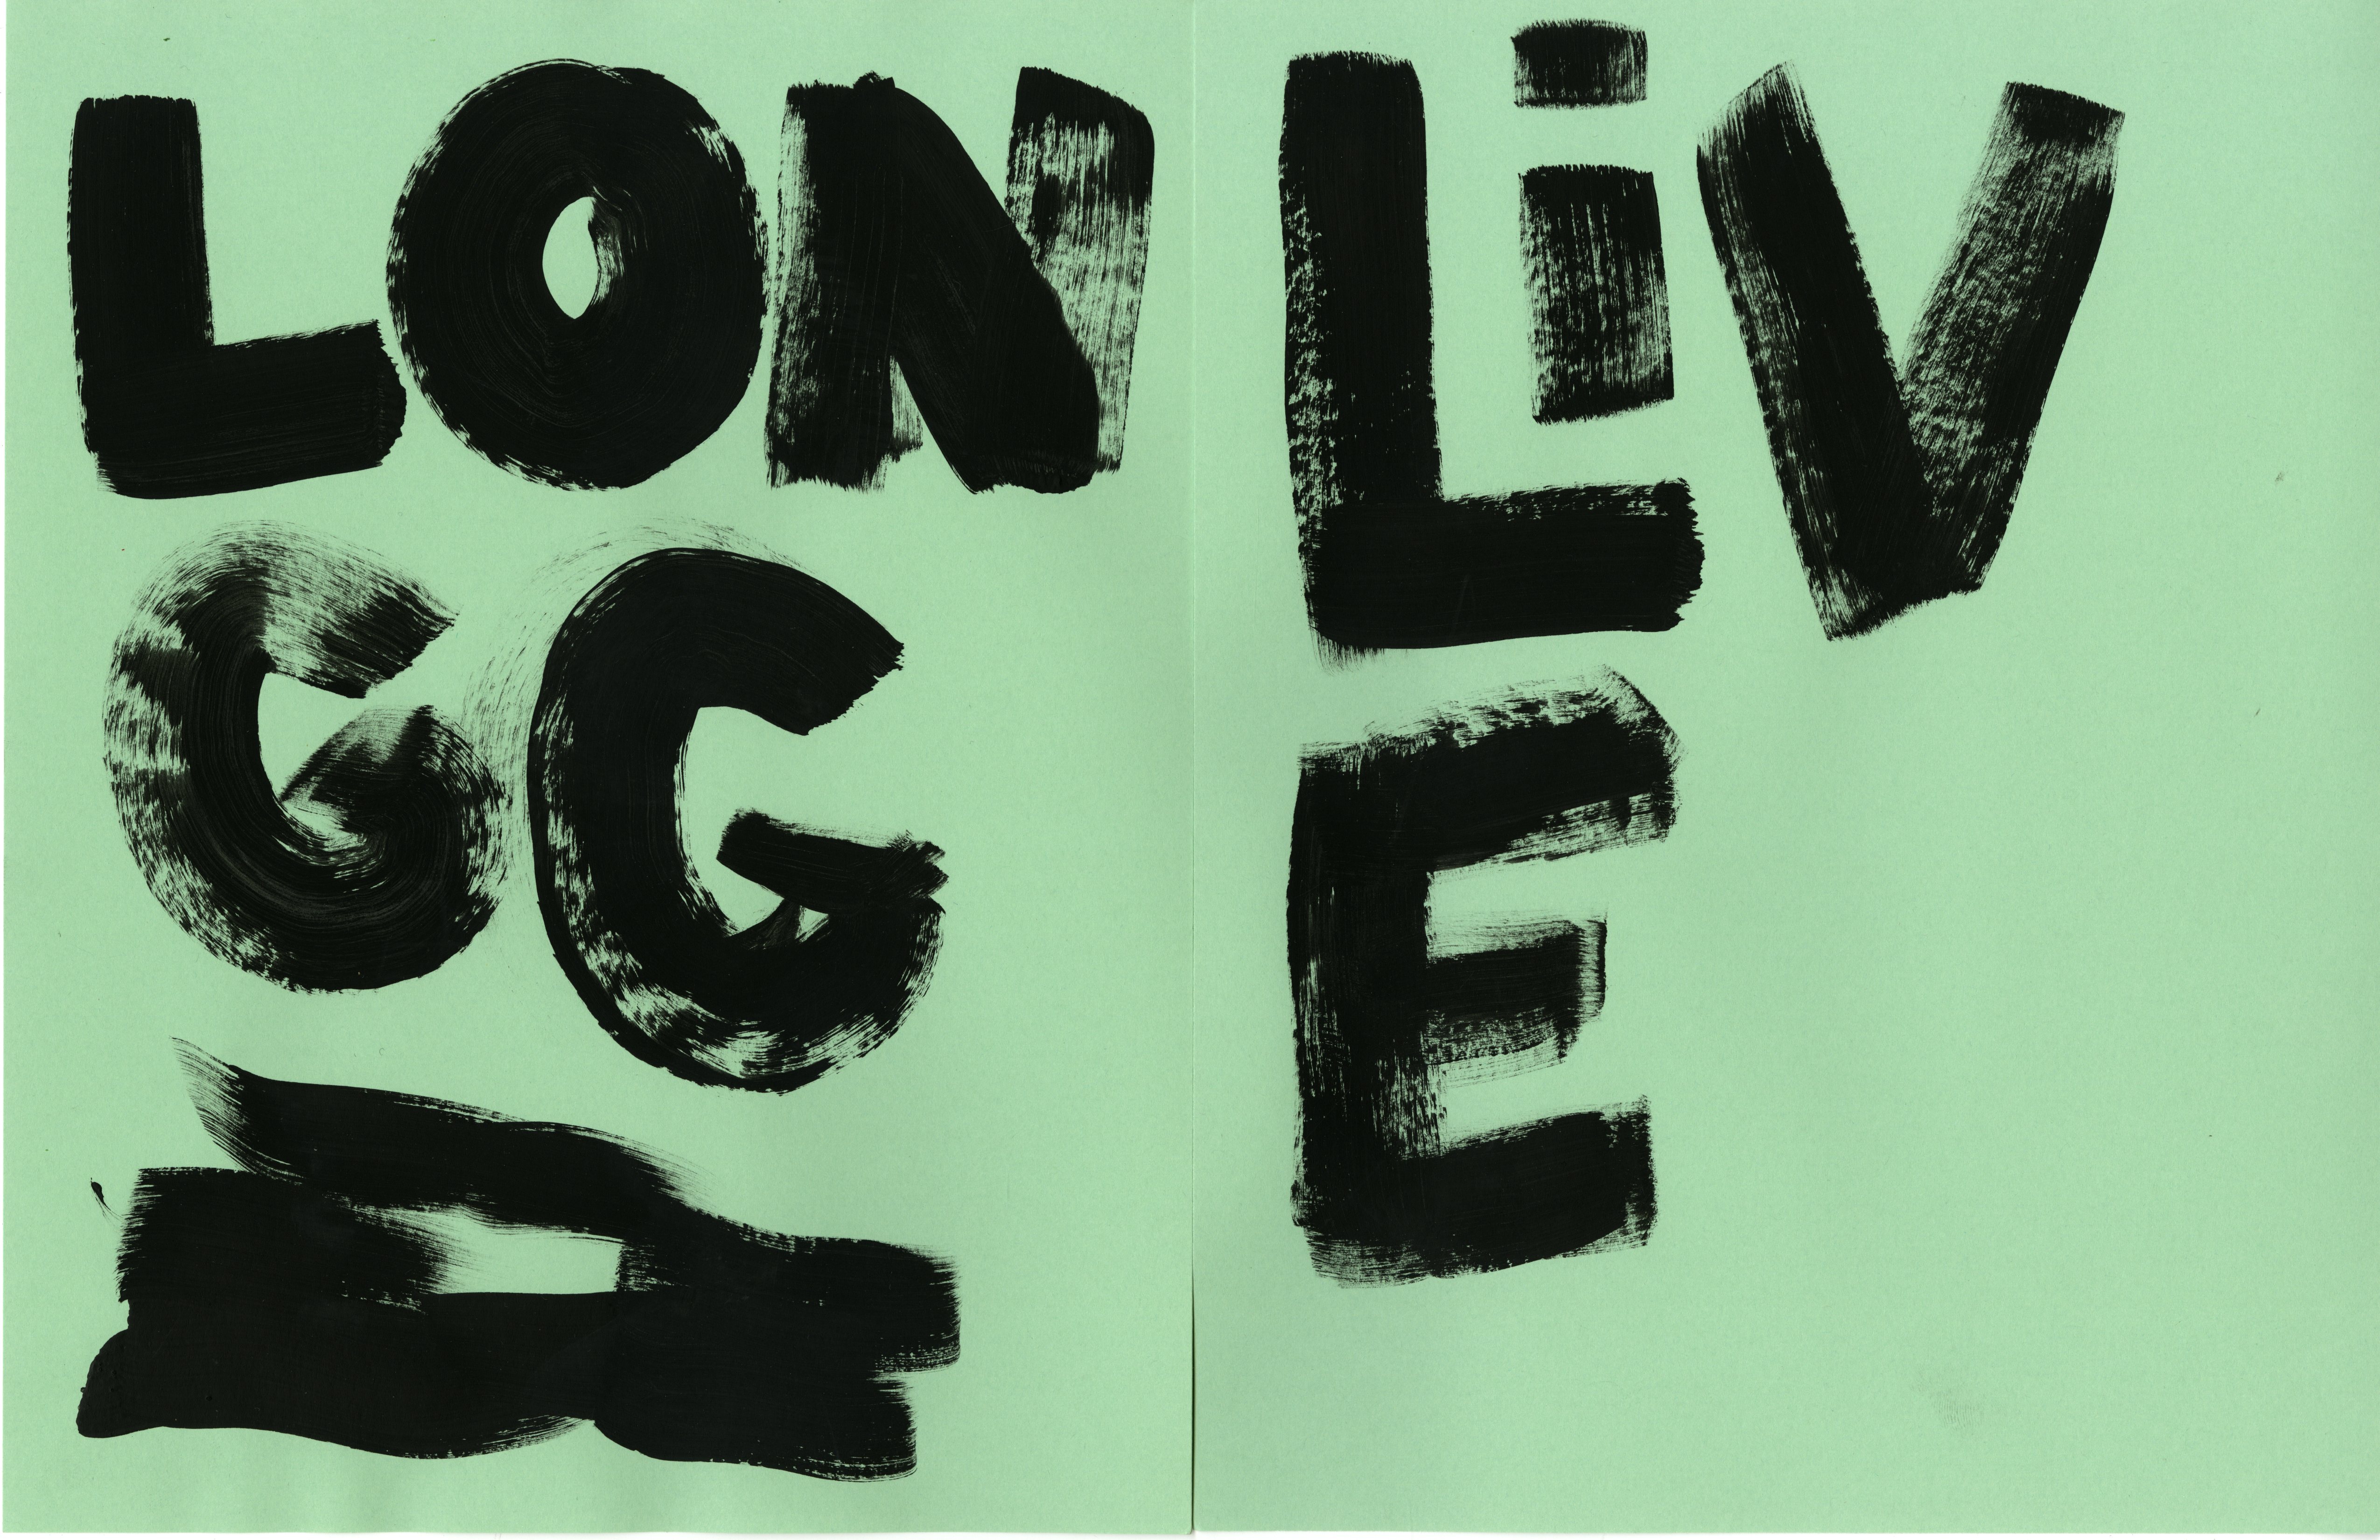 LON
GG
LiV
E